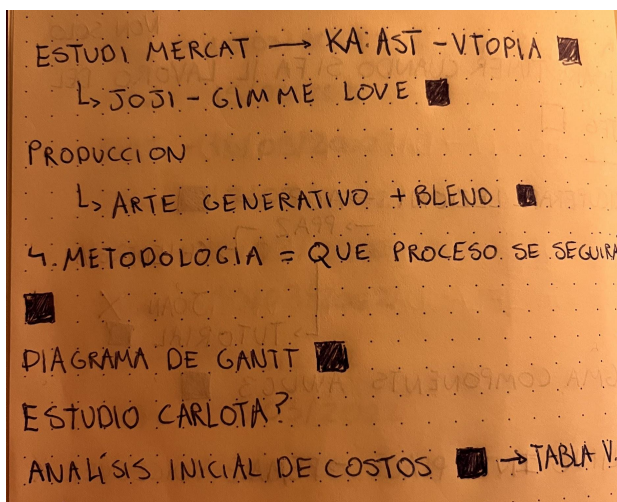 ESTUDI MERCAT → KA:AST - VTOPIA
↳ JOJI - GIMME LOVE
PRODUCCION
↳ ARTE GENERATIVO + BLEND
4. METODOLOGIA = QUE PROCESO SE SEGUIRA
DIAGRAMA DE GANTT
ESTUDIO CARLOTA?
ANALÍSIS INICIAL DE COSTOS → TABLA V.